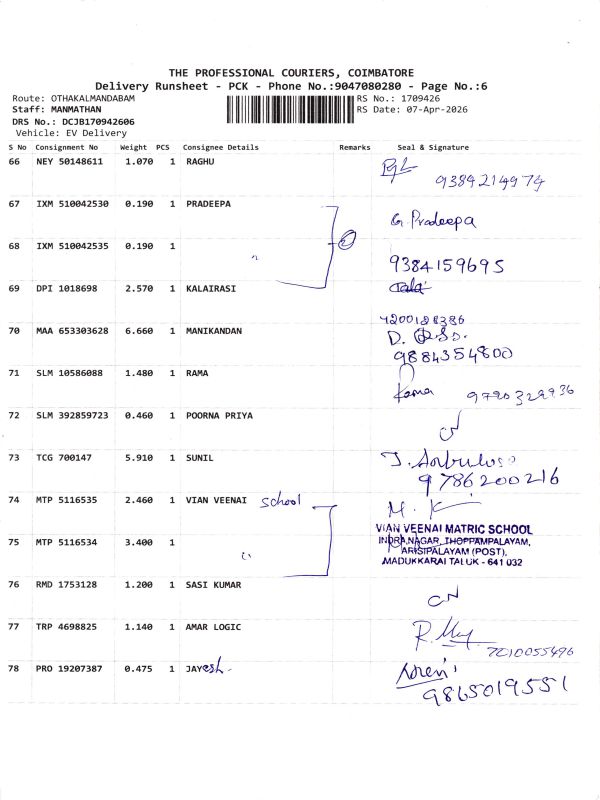 THE PROFESSIONAL COURIERS, COIMBATORE
Delivery Runsheet - PCK - Phone No.:9047080280 - Page No.:6
Route: OTHAKALMANDABAM RS No.: 1709426
Staff: MANMATHAN RS Date: 07-Apr-2026
DRS No.: DCJB170942606
Vehicle: EV Delivery
S No Consignment No Weight PCS Consignee Details Remarks Seal & Signature
66 NEY 50148611 1.070 1 RAGHU
9384214974
67 IXM 510042530 0.190 1 PRADEEPA
G. Pradeepa
68 IXM 510042535 0.190 1
9384159695
69 DPI 1018698 2.570 1 KALAIRASI
4200128386
70 MAA 653303628 6.660 1 MANIKANDAN
9884354800
71 SLM 10586088 1.480 1 RAMA
72 SLM 392859723 0.460 1 POORNA PRIYA
73 TCG 700147 5.910 1 SUNIL
9786200216
74 MTP 5116535 2.460 1 VIAN VEENAI school
VIAN VEENAI MATRIC SCHOOL
INDRA NAGAR, THOPPAMPALAYAM,
75 MTP 5116534 3.400 1
ARISIPALAYAM (POST),
MADUKKARAI TALUK - 641 032
76 RMD 1753128 1.200 1 SASI KUMAR
77 TRP 4698825 1.140 1 AMAR LOGIC
7010055496
78 PRO 19207387 0.475 1 JAYesh.
9865019551